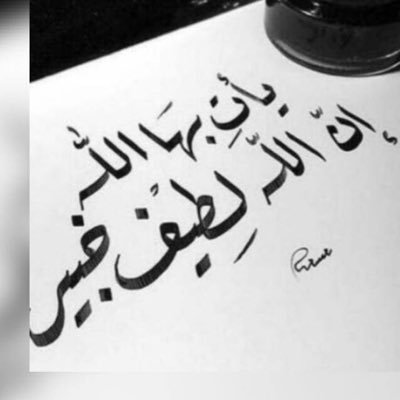 يأتِ بهَا اللّه
إنَّ اللّه لطيفٌ خبير